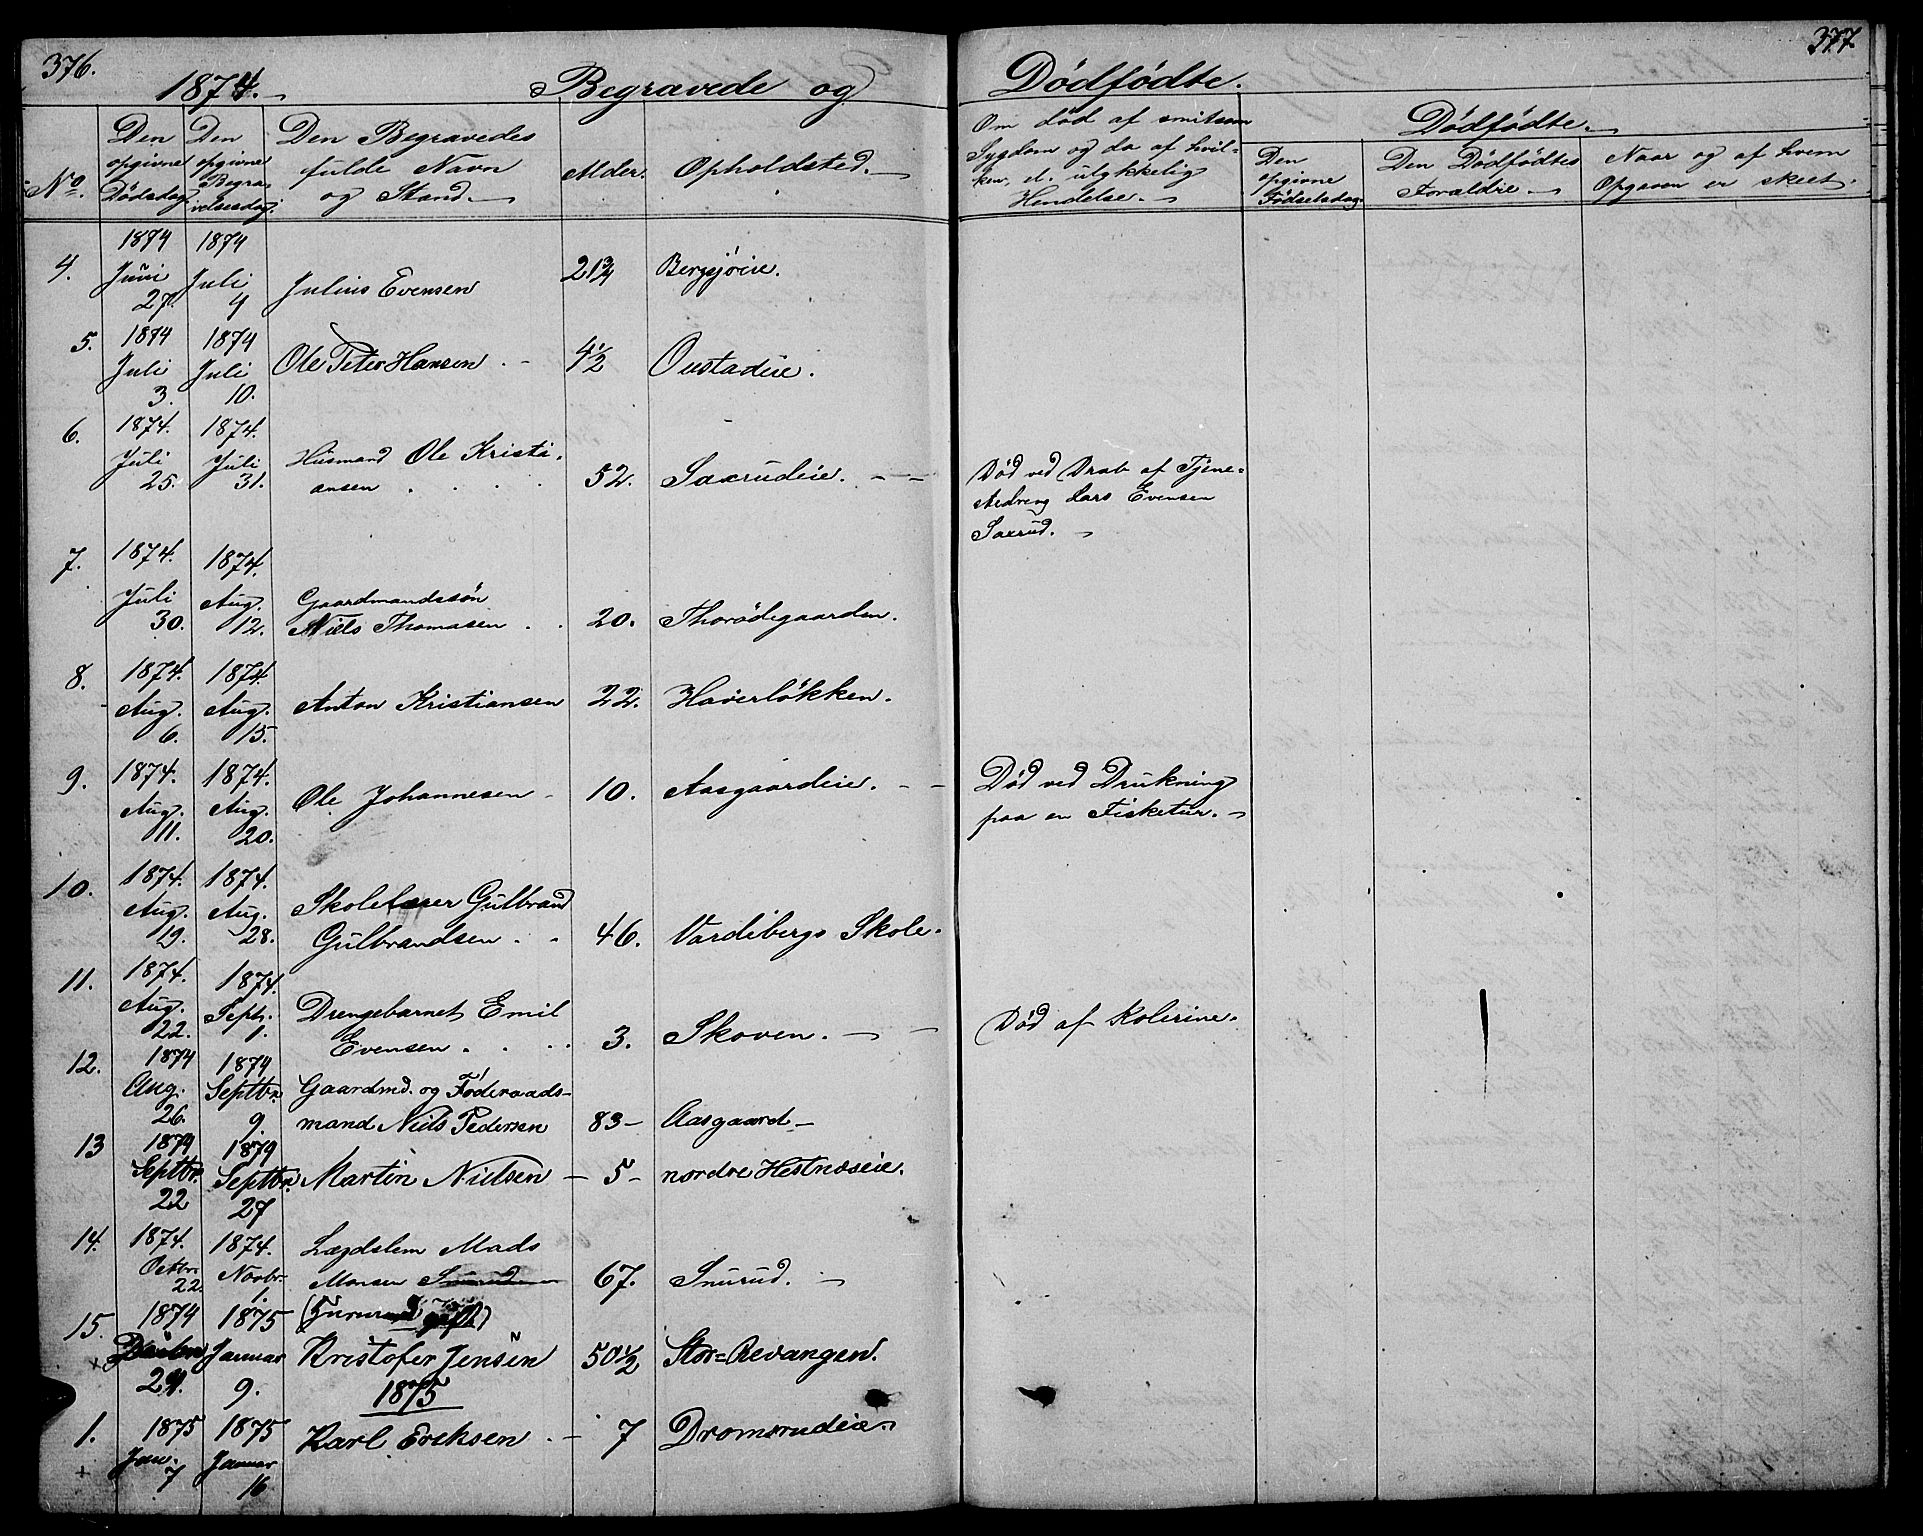 376.
377.
1874.
Begravede og Dødfødte.
No.
Den opgivne Dødsdag.
Den opgivne Begravelsesdag.
Den Begravedes fulde Navn og Stand.
Alder.
Opholdsted.
Om død af smitsom Sygdom og da af hvilken, el. ulykkelig Hendelse.
Dødfødte.
Den opgivne Fødselsdag.
Den Dødfødtes Forældre.
Naar og af hvem Opgaven er skeet.
4. 1874 Juni 27. 1874 Juli 4 Julius Evensen 21¾ Bergsjøeie.
5. 1874 Juli 3. 1874 Juli 10. Ole Peter Hansen. 4½ Oustadeie.
6. 1874. Juli 25. 1874. Juli 31. Husmand Ole Kristi-
ansen 52. Saxrudeie.
Død ved Drab af Tjene-
stedreng Lars Evensen
Saxrud.
7. 1874. Juli 30. 1874. Aug. 12. Gaardmandssøn
Niels Thomasen 20. Thorødegaarden.
8. 1874. Aug. 6. 1874. Aug. 15. Anton Kristiansen 22. Haverløkken.
9. 1874. Aug. 11. 1874. Aug. 20. Ole Johannesen 10. Aasgaardeie.
Død ved Drukning
paa en Fisketur.
10. 1874. Aug. 19. 1874. Aug. 28. Skolelærer Gulbrand
Gulbrandsen 46. Vardebergs Skole.
11. 1874. Aug. 22. 1874. Septr. 1. Drengebarnet Emil
Evensen 3. Skoven.
Død af Kolerine.
12. 1874 Aug. 26. 1874 Septbr. 9. Gaardmd. og Føderaads-
mand Niels Pedersen 83 Aasgaard
13 1874 Septbr. 22 1874 Septbr. 27 Martin Nielsen 5 nordre Hestnæseie.
14. 1874. Octbr. 22. 1874. Novbr. 1. Lægdslem Mads
Monsen 67. Snurud.
15. 1874 29. 1875 Januar 9. Kristofer Jensen 50½ Stor=Revangen.
1875
1. 1875 Jan. 7 1875 Januar 16 Karl Eriksen. 7 Dromsrudeie.